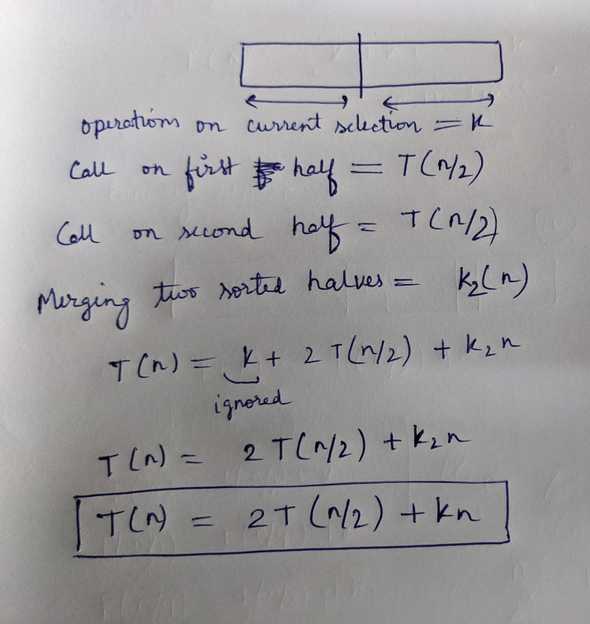 operations on current selection = K
Call on first half = T(n/2)
Call on second half = T(n/2)
Merging two sorted halves = K₂(n)
T(n) = K + 2T(n/2) + K₂n
ignored
T(n) = 2T(n/2) + K₂n
T(n) = 2T(n/2) + Kn